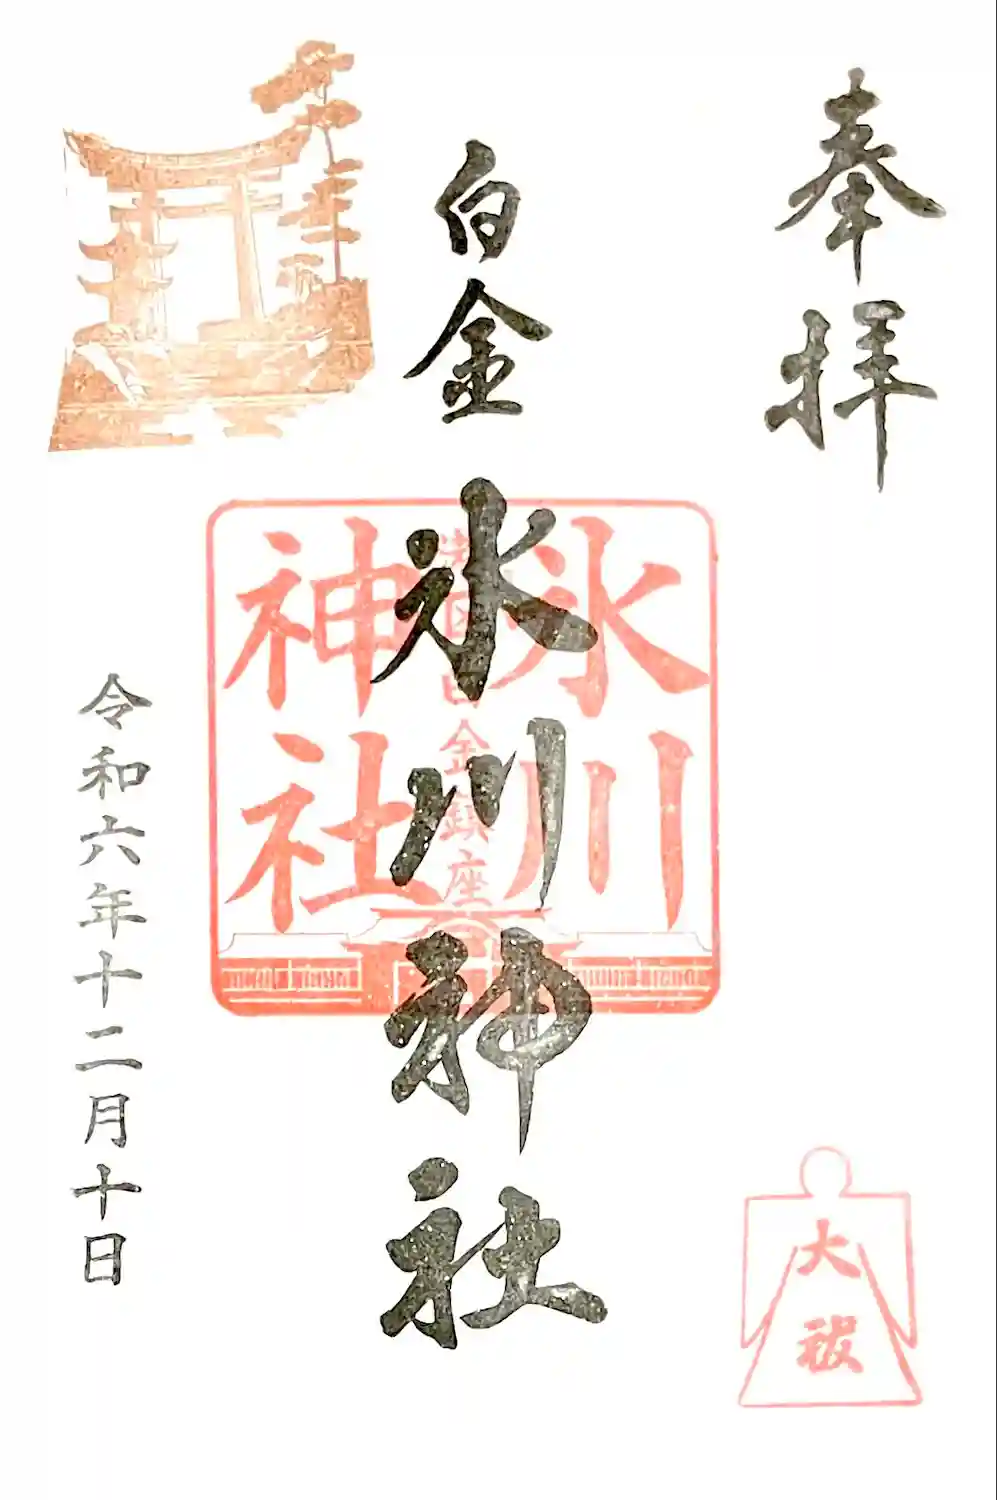 奉拝
白金
氷川神社
氷川
神社
港区白金鎮座
大祓
令和六年十二月十日